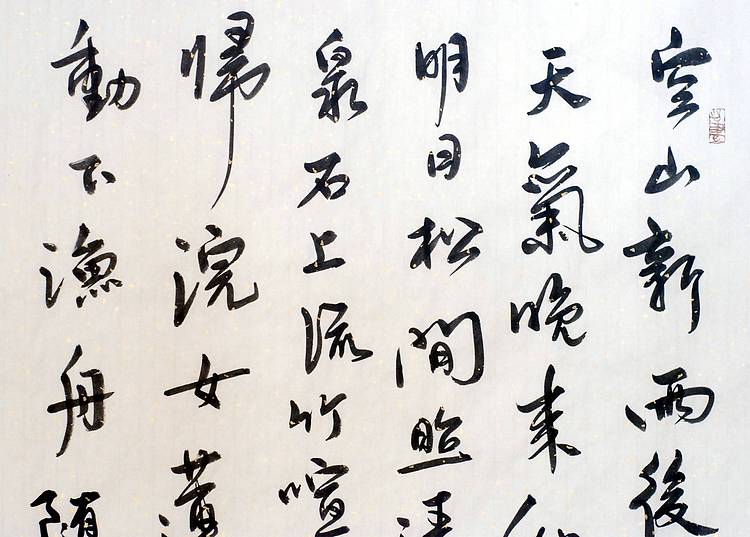 空山新雨後
天氣晚来秋
明月松間照清
泉石上流竹喧
帰浣女蓮
動下漁舟随